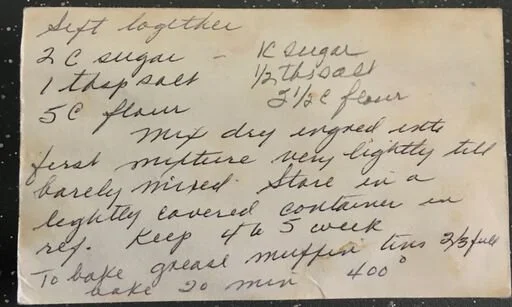 Sift together
2 C sugar - 1C sugar
1 tbsp salt 1/2 tbs salt
5C flour 2 1/2 C flour
Mix dry ingred into
first mixture very lightly till
barely mixed. Store in a
lightly covered container in
ref. Keep 4 to 5 week
To bake grease muffin tins 2/3 full
bake 20 min 400°